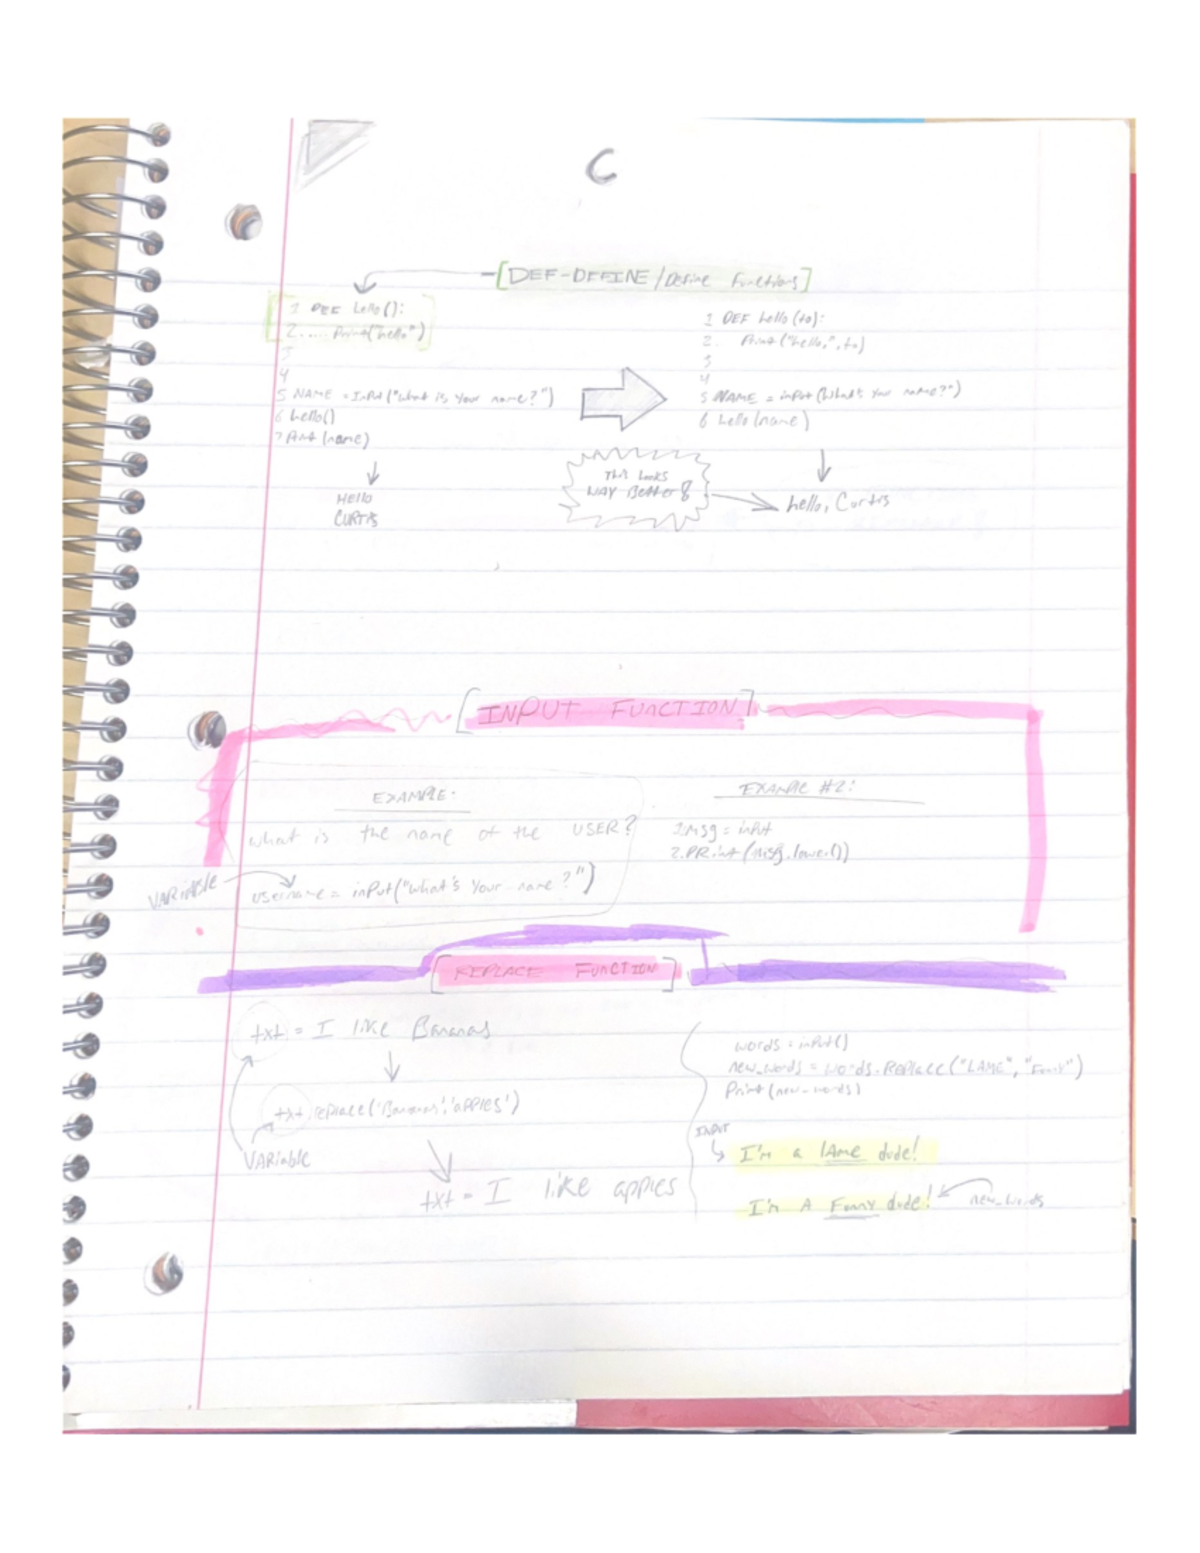 C
[DEF-DEFINE/Define Functions]
1 DEF hello():
2..... Print("hello")
3
4
5 NAME = InPut("what is your name?")
6 hello()
7 Print(name)
HELLO
CURTIS
1 DEF hello(to):
2. Print("hello,",to)
3
4
5 NAME = inPut(What's Your name?")
6 hello(name)
This Looks
WAY Better!
hello, Curtis
[INPUT FUNCTION]
EXAMPLE:
what is the name of the USER?
VARiable
username = inPut("What's Your name?")
EXAMPLE #2:
1.msg = inPut
2.PRint(msg.lower())
[REPLACE FUNCTION]
txt = I like Bananas
txt.replace('Bananas','apples')
VARiable
txt = I like apples
words = inPut()
new_words = words.REPlace("LAME", "Funny")
Print(new_words)
INPUT
I'm a lAme dude!
I'm A Funny dude!
new_words